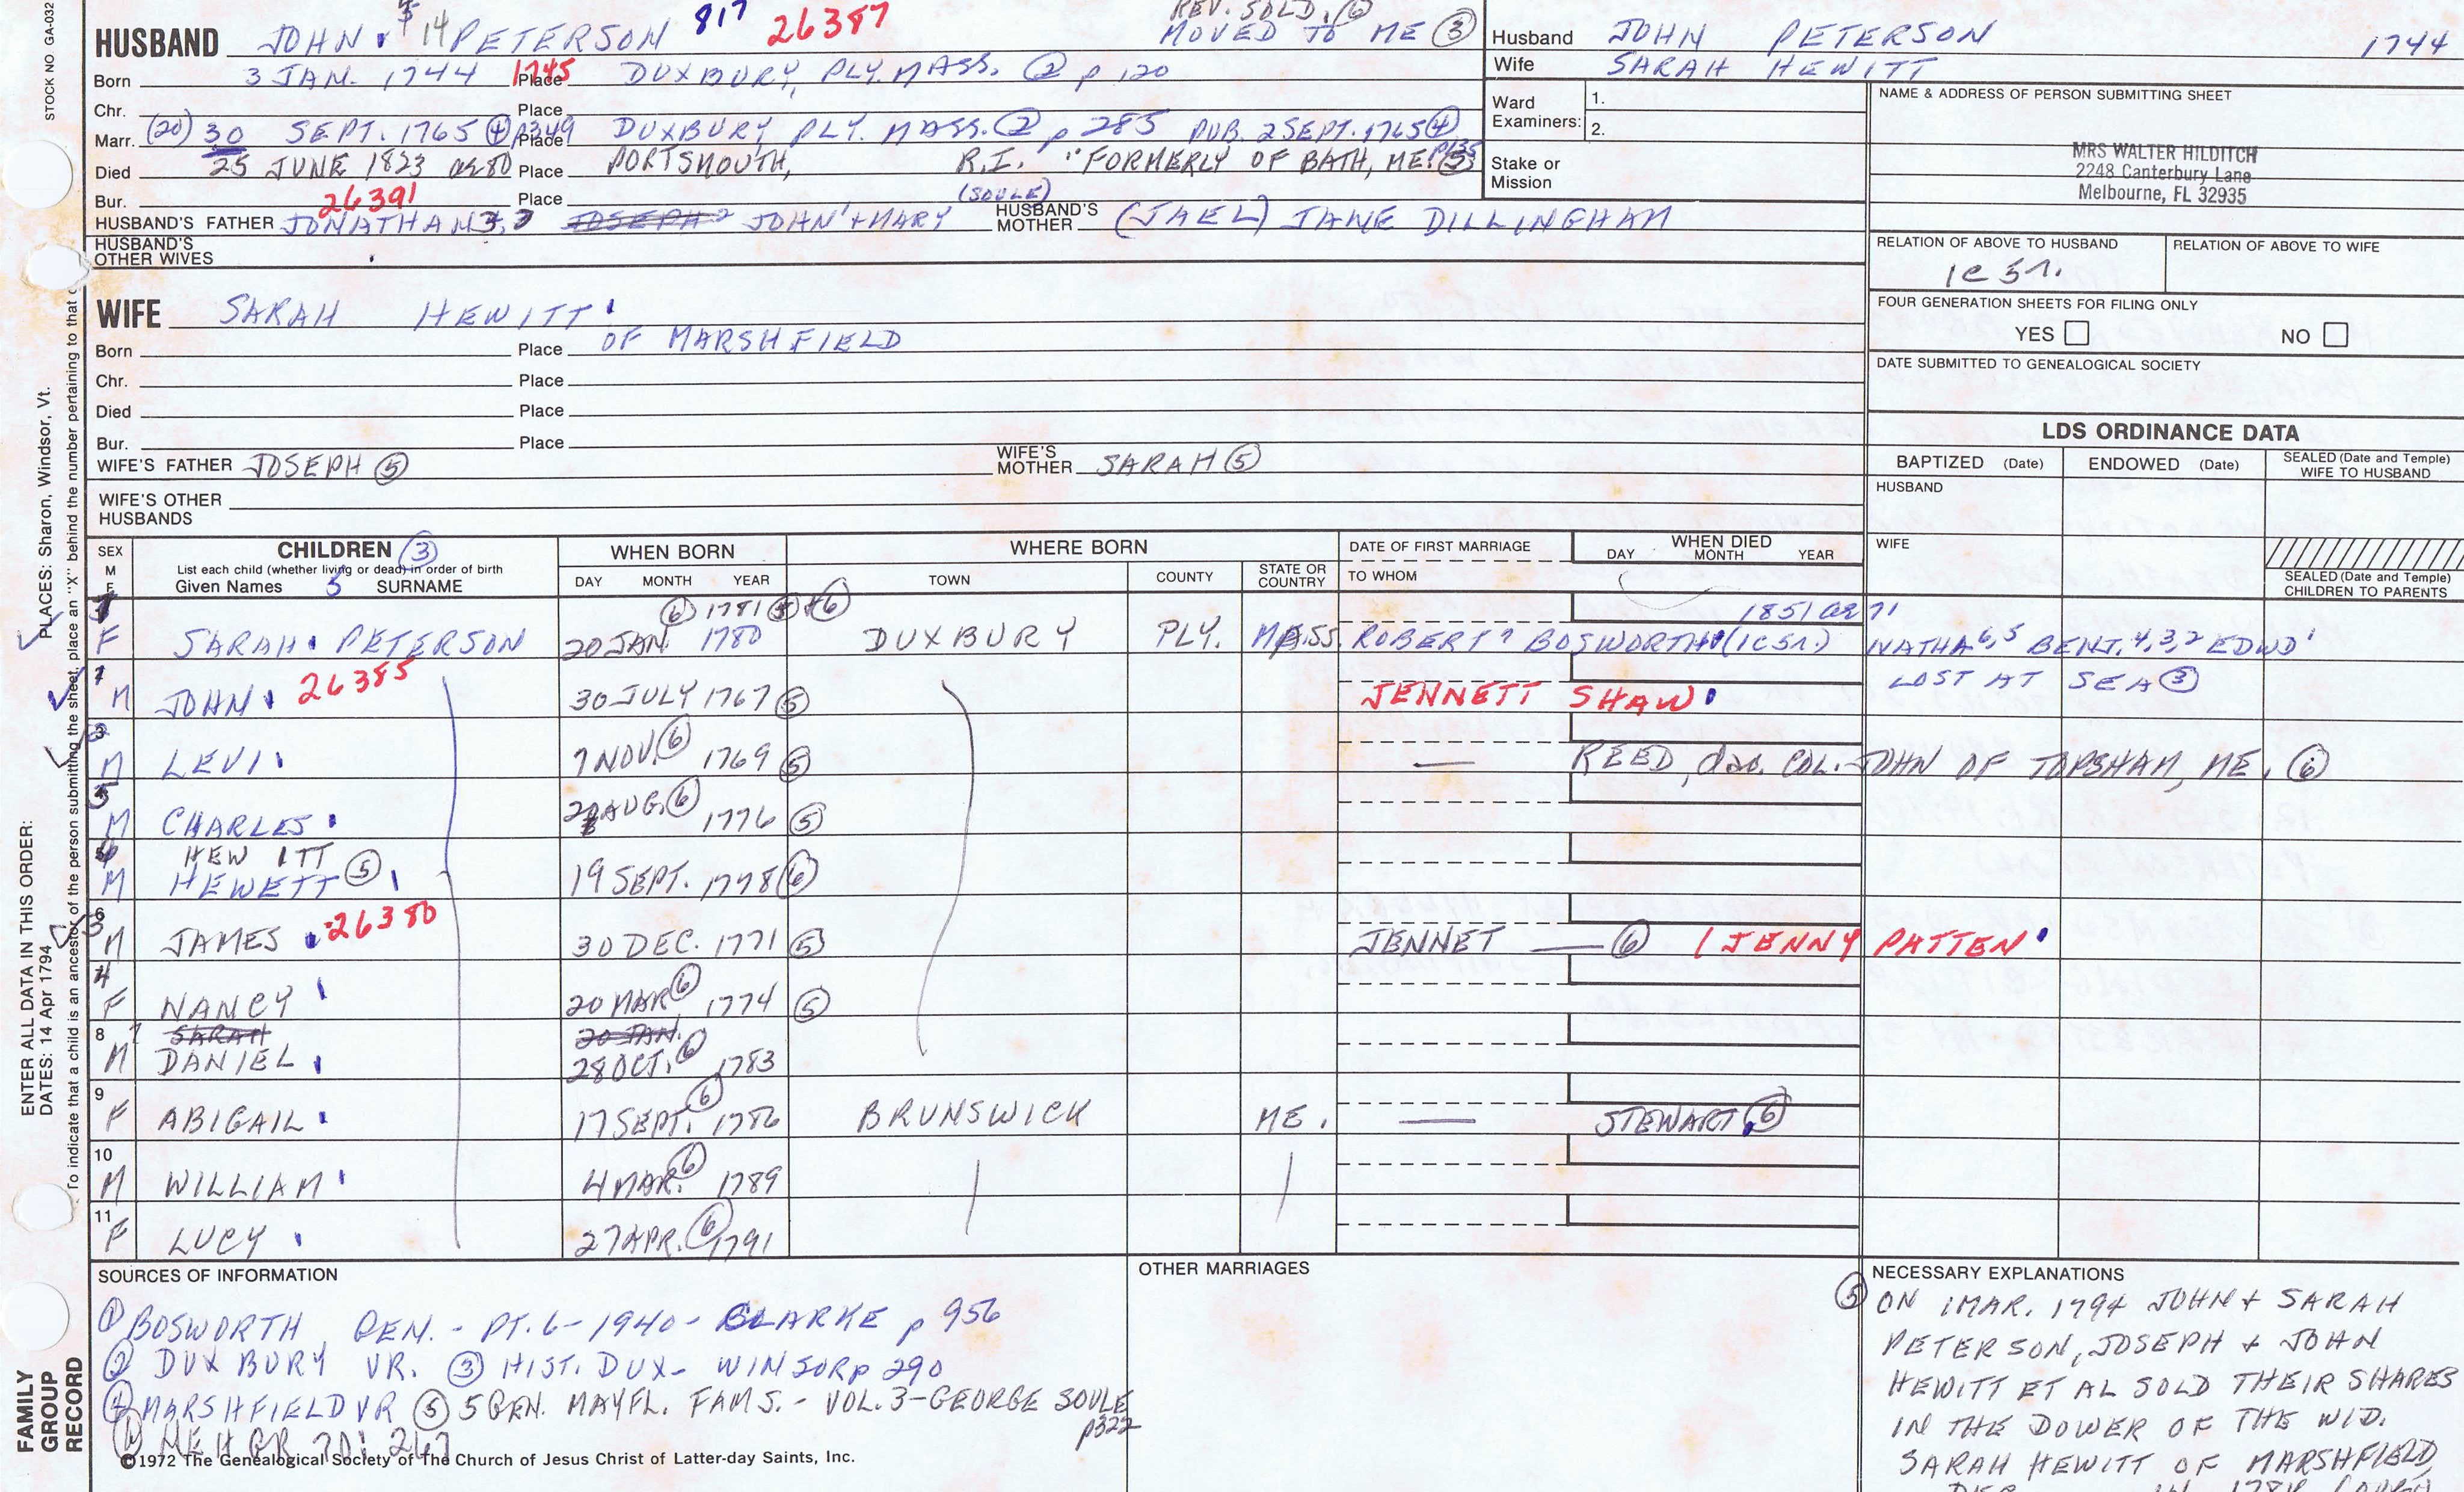 STOCK NO. GA-032
REV. SOLD. ⑥
HUSBAND JOHN 14 PETERSON 817 26387 MOVED TO ME ③
Husband JOHN PETERSON 1744
Wife SARAH HEWITT
Born 3 JAN. 1744 1745 Place DUXBURY, PLY. MASS. ② p 120
Chr. Place
Marr. (20) 30 SEPT. 1765 ④ p349 Place DUXBURY PLY. MASS. ② p 285 PUB. 2 SEPT. 1765 ④
p135
Died 25 JUNE 1823 ae 80 Place PORTSMOUTH, R.I. "FORMERLY OF BATH, ME. ⑤
Bur. 26391 Place
(SOULE)
HUSBAND'S FATHER JONATHAN 3, JOSEPH 2 JOHN 1 + MARY HUSBAND'S MOTHER (JAEL) JANE DILLINGHAM
HUSBAND'S OTHER WIVES
Ward Examiners: 1.
2.
Stake or Mission
NAME & ADDRESS OF PERSON SUBMITTING SHEET
MRS WALTER HILDITCH
2248 Canterbury Lane
Melbourne, FL 32935
RELATION OF ABOVE TO HUSBAND RELATION OF ABOVE TO WIFE
1C 5r.
FOUR GENERATION SHEETS FOR FILING ONLY
YES NO
DATE SUBMITTED TO GENEALOGICAL SOCIETY
WIFE SARAH HEWITT
Born Place OF MARSHFIELD
Chr. Place
Died Place
Bur. Place
WIFE'S FATHER JOSEPH ⑤ WIFE'S MOTHER SARAH ⑤
WIFE'S OTHER HUSBANDS
LDS ORDINANCE DATA
BAPTIZED (Date) ENDOWED (Date) SEALED (Date and Temple) WIFE TO HUSBAND
HUSBAND
WIFE
SEALED (Date and Temple) CHILDREN TO PARENTS
SEX M F CHILDREN ③ WHEN BORN WHERE BORN DATE OF FIRST MARRIAGE WHEN DIED
List each child (whether living or dead) in order of birth
Given Names 5 SURNAME DAY MONTH YEAR TOWN COUNTY STATE OR COUNTRY TO WHOM DAY MONTH YEAR
⑥ 1781 ⑤ + ⑥ 1851 ae 71
F SARAH PETERSON 20 JAN. 1780 DUXBURY PLY. MASS. ROBERT 7 BOSWORTH (1C 5r.) NATHA 6,5 BENJ. 4,3,2 EDWD 1
1 M JOHN 26385 30 JULY 1767 ⑤ JENNETT SHAW LOST AT SEA ③
M LEVI 7 NOV. ⑥ 1769 ⑤ — REED, dau. COL. JOHN OF TOPSHAM, ME. ⑥
5 M CHARLES AUG. ⑥ 1776 ⑤
HEWITT
M HEWETT ⑤ 19 SEPT. 1778 ⑥
M JAMES 26380 30 DEC. 1771 ⑤ JENNET — ⑥ (JENNY PATTEN
4 F NANCY 20 MAR ⑥ 1774 ⑤
8 SARAH 20 JAN.
M DANIEL 28 OCT. ⑥ 1783
9 F ABIGAIL 17 SEPT. ⑥ 1786 BRUNSWICK ME. — STEWART ⑥
10 M WILLIAM 4 MAR. ⑥ 1789
11 F LUCY 27 APR. ⑥ 1791
SOURCES OF INFORMATION
① BOSWORTH GEN. - PT. 6 - 1940 - CLARKE p 956
② DUXBURY VR. ③ HIST. DUX - WINSOR p 290
④ MARSHFIELD VR ⑤ 5 GEN. MAYFL. FAMS. - VOL. 3 - GEORGE SOULE
p322
⑥ NEHGR 70: 267
©1972 The Genealogical Society of The Church of Jesus Christ of Latter-day Saints, Inc.
OTHER MARRIAGES
NECESSARY EXPLANATIONS
⑤ ON 1 MAR. 1794 JOHN + SARAH
PETERSON, JOSEPH + JOHN
HEWITT ET AL SOLD THEIR SHARES
IN THE DOWER OF THE WID.
SARAH HEWITT OF MARSHFIELD,
PLACES: Sharon, Windsor, Vt.
ENTER ALL DATA IN THIS ORDER:
DATES: 14 Apr 1794
To indicate that a child is an ancestor of the person submitting the sheet, place an "X" behind the number pertaining to that
FAMILY
GROUP
RECORD